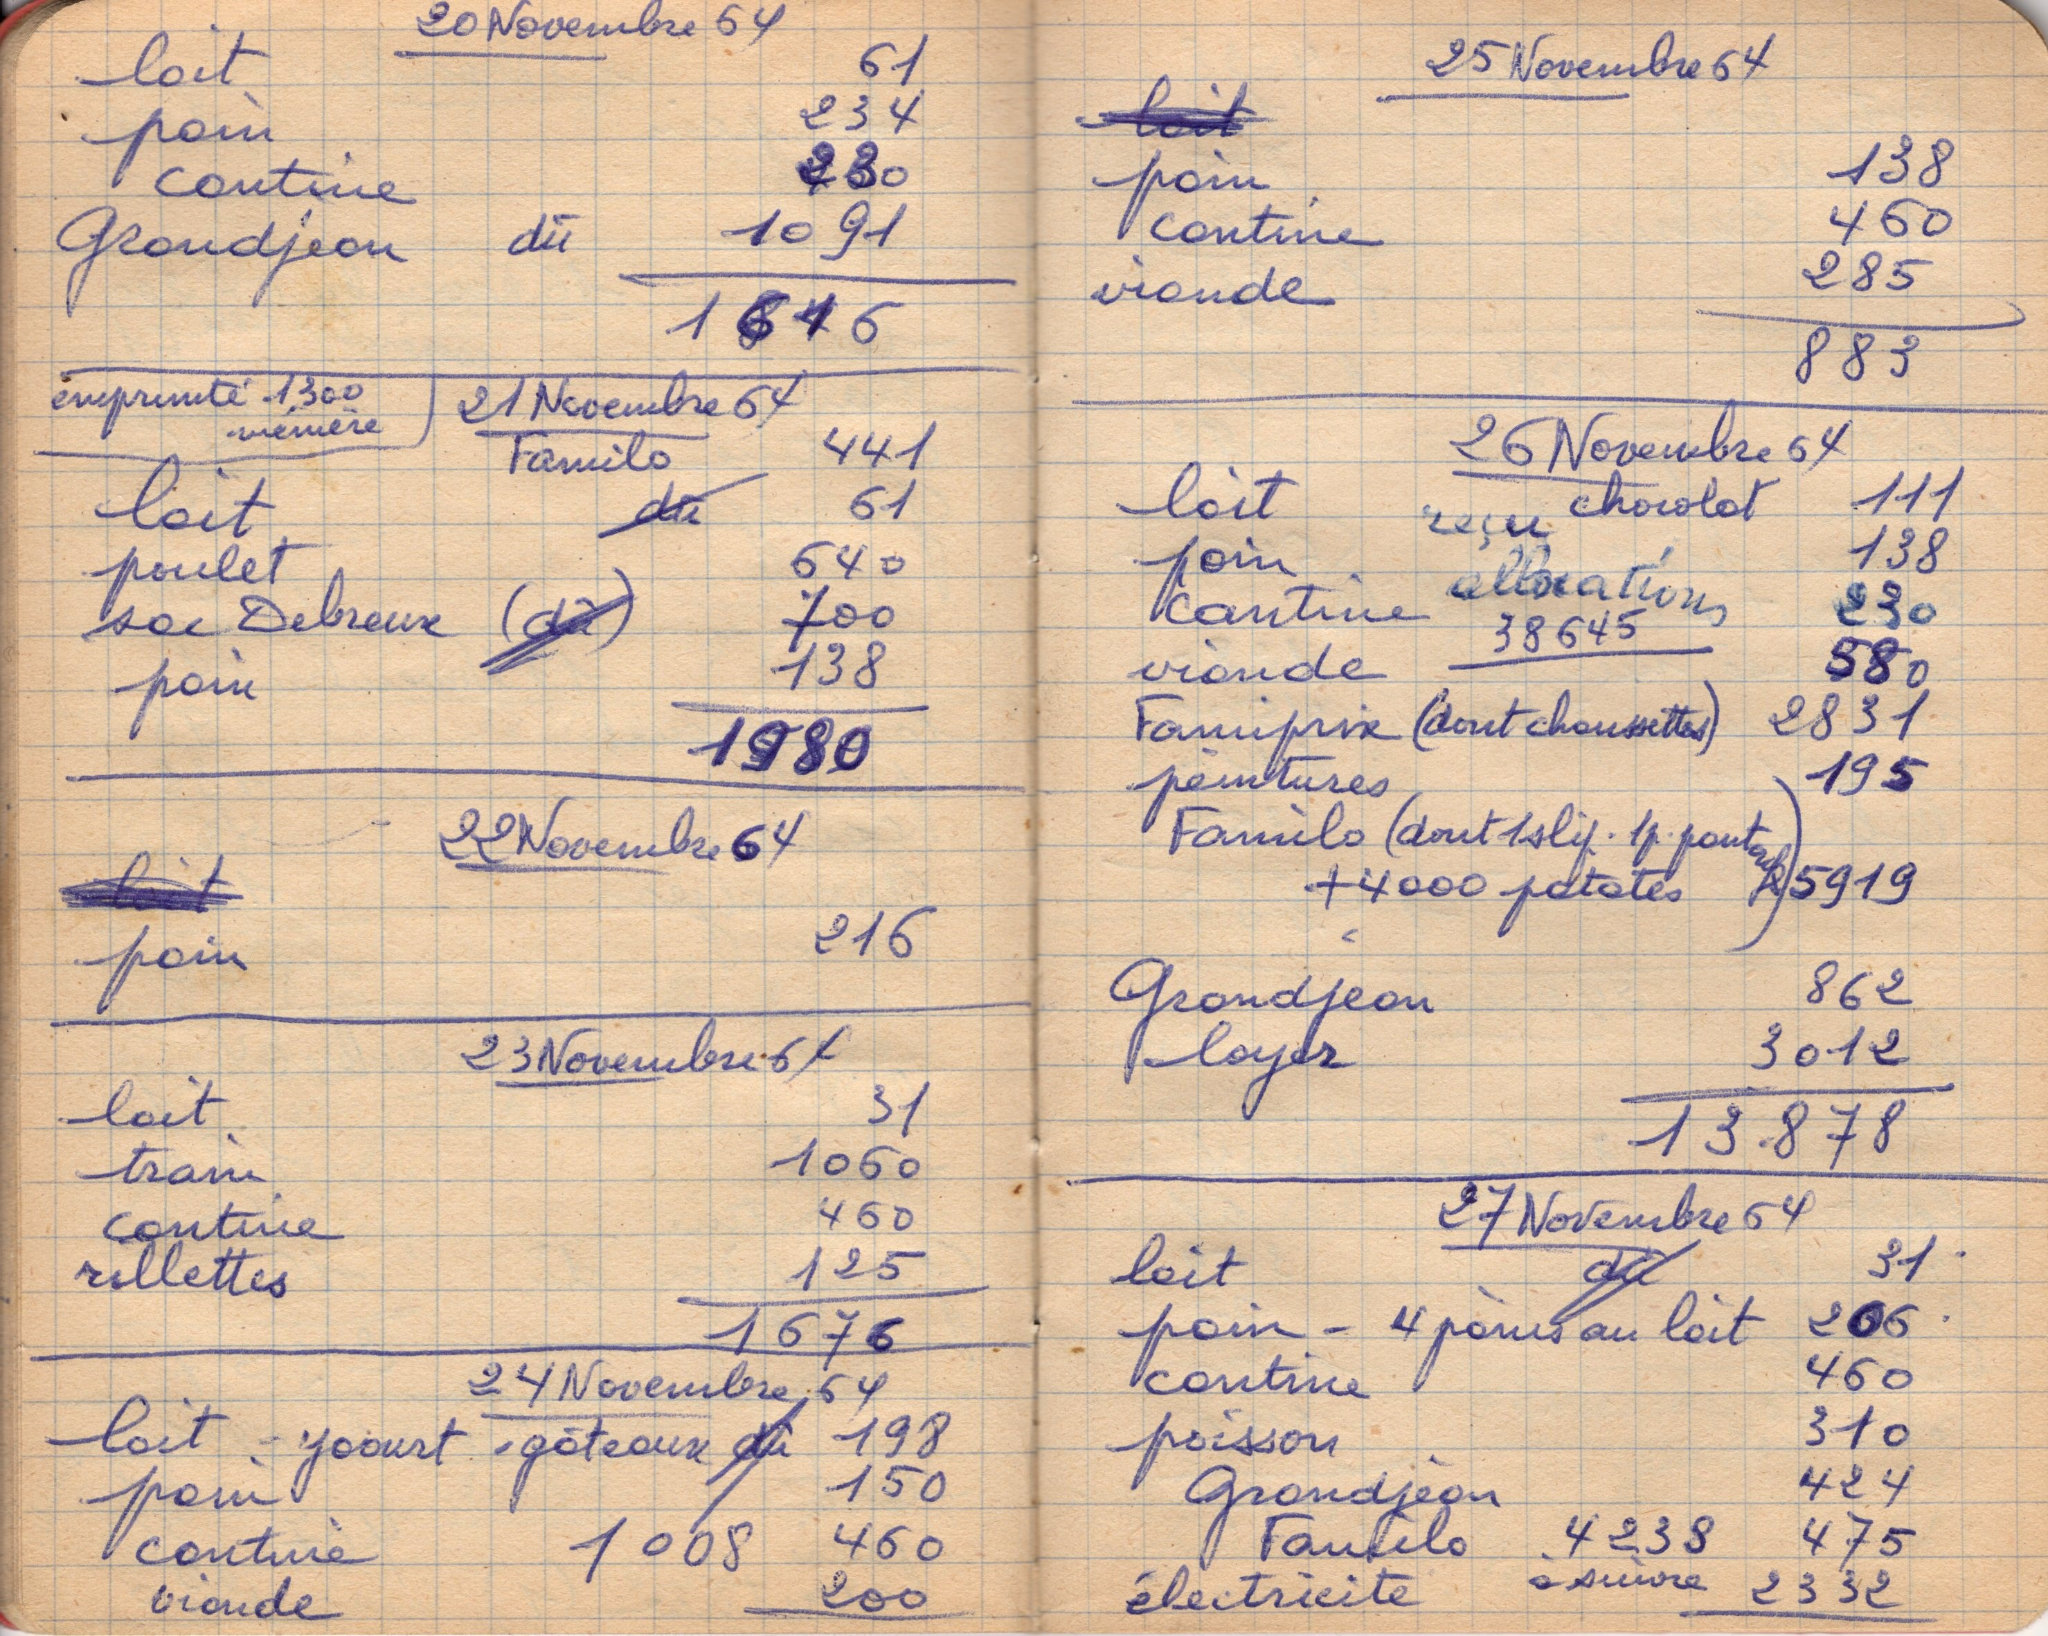 20 Novembre 64
lait 61
pain 234
cantine 230
Grandjean dû 1091
1616
emprunté 1300
mémère
21 Novembre 64
Familo 441
lait dû 61
poulet 640
sac Debreux (dû) 700
pain 138
1980
22 Novembre 64
lait
pain 216
23 Novembre 64
lait 31
train 1060
cantine 460
rillettes 125
1676
24 Novembre 64
lait - yaourt - gâteaux dû 198
pain 150
cantine 1008 460
viande 200
25 Novembre 64
lait
pain 138
cantine 460
viande 285
883
26 Novembre 64
lait chocolat 111
reçu
pain 138
allocations
cantine 230
38645
viande 580
Familprix (dont chaussettes) 2831
peintures 195
Familo (dont 1 slip. 1 p. pant
+ 4000 patates 5919
Grandjean 862
loyer 3012
13.878
27 Novembre 64
lait dû 31
pain - 4 pains au lait 206
cantine 460
poisson 310
Grandjean 424
Familo 4238 475
électricité à suivre 2332